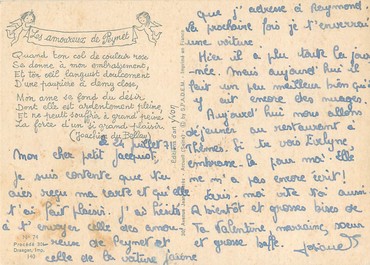 Les amoureux de Peynet
Quand ton col de couleur rose
Se donne à mon embrassement,
Et ton œil languit doucement
D'une paupière à demy close,
Mon ame se fond du désir
Dont elle est ardentement pleine,
Et ne peut souffrir à grand'peine
La force d'un si grand plaisir.
(Joachim du Bellay)
le 24 Juillet 71
Mon cher petit Jacquot,
je suis contente que tu
aies reçu ma carte et qu'elle
t'ai fait plaisir. J'ai hésité
à t'envoyer celle des amou-
reuse de Peynet et
celle de la voiture jaune
N° 74
Procédé
Draeger, Imp.
Editions d'art YVON
Imprimé en France
que j'adresse à Reymond.
La prochaine fois je t'enverrai
une voiture.
Hier il a plu toute la jour-
née. Mais aujourd'hui il
fait un peu meilleur bien qu'il
y ait encore des nuages.
Aujourd'hui nous allons
déjeuner au restaurant à
Thèmes. Si tu vois Evelyne,
embrasse la pour moi. Elle
ne m'a pas encore écrit!
A bientôt et grosses bises de
Ta Valentine, marraine, sœur
et grosse baffe.
Josiane